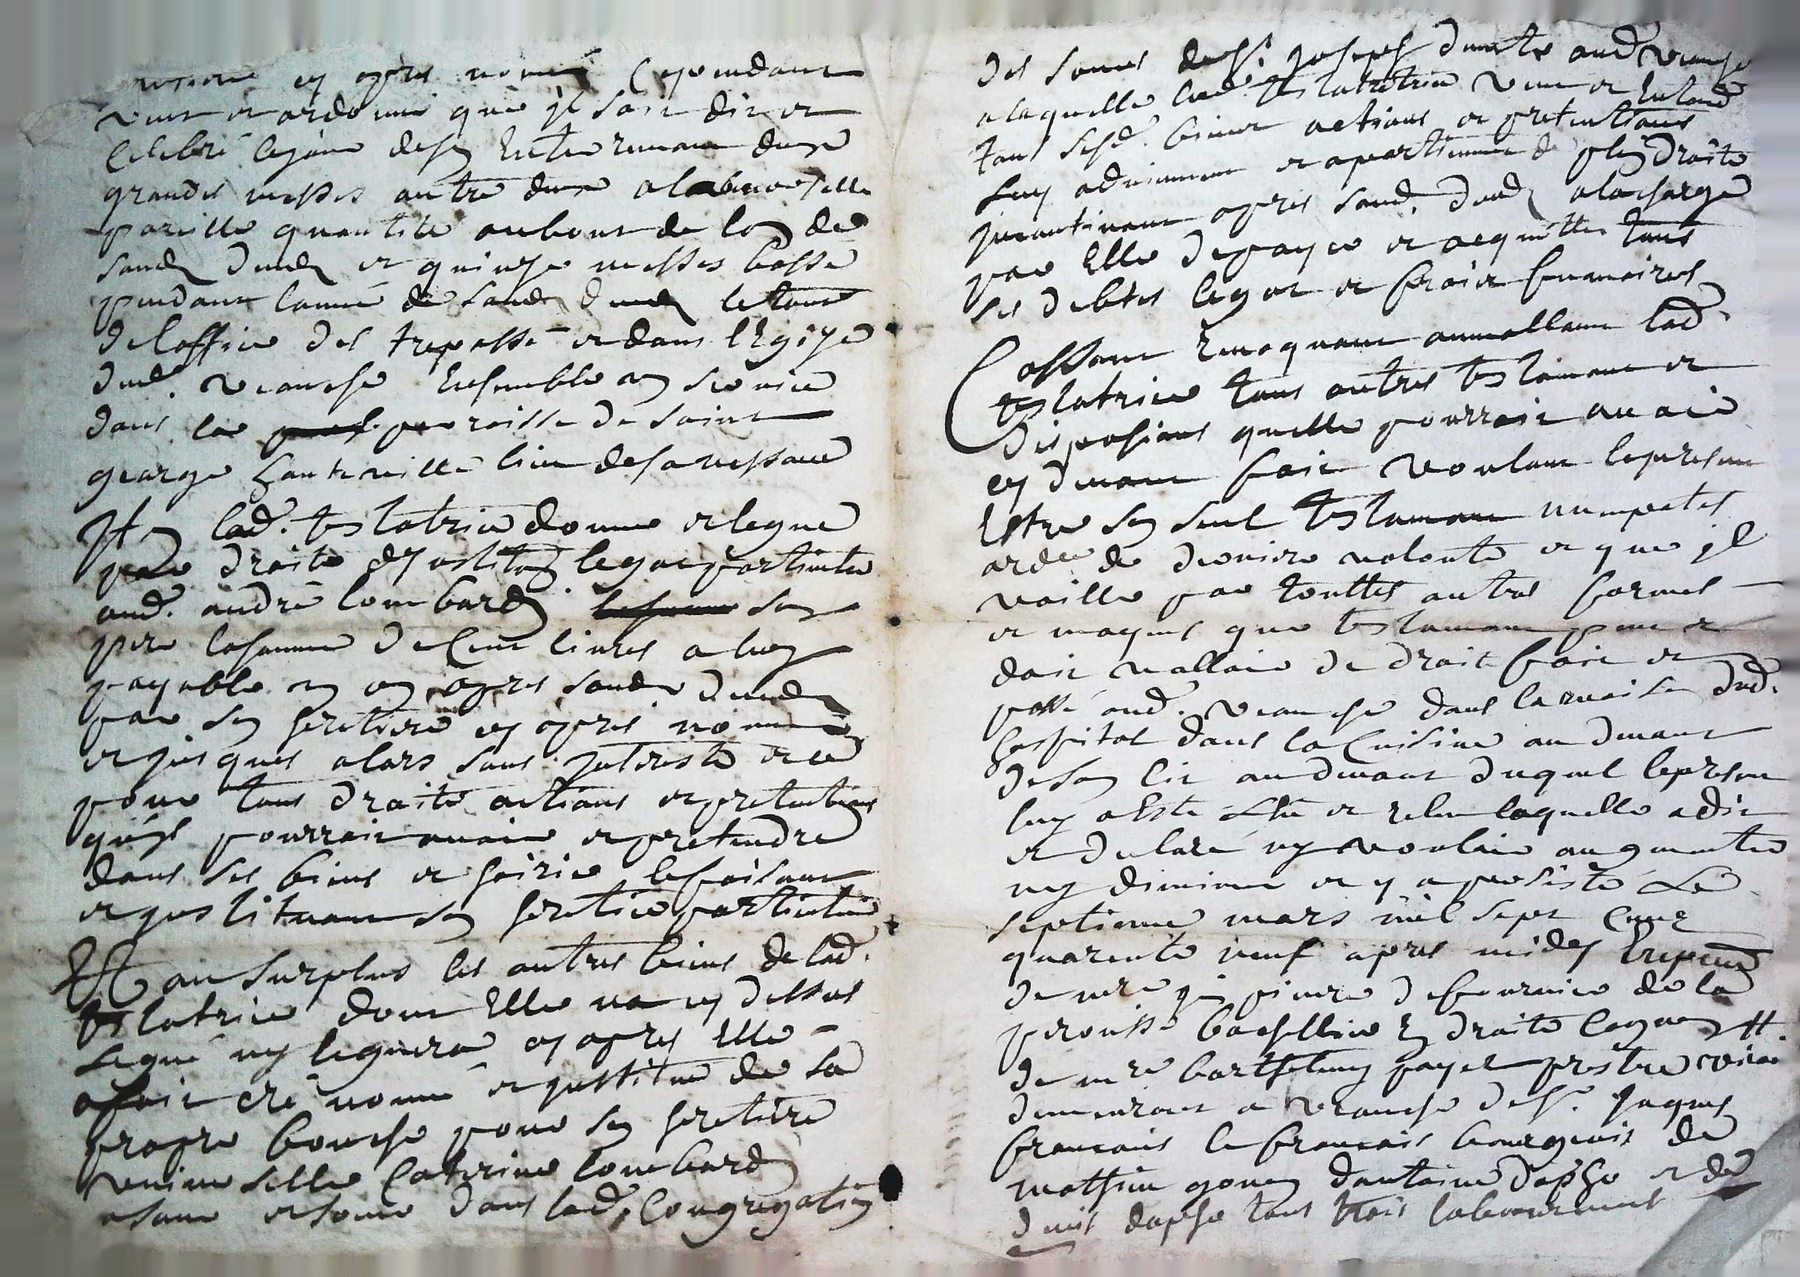 cy apres nommé Cependant
veut et ordonne que jl soit dit et
Celebré le jour de sg Enterremant douse
grandes messes autre douse a la
pareille quantité au bout de lan de
sond deced et quinze messes basse
pendant lanné de sond deced le tout
de loffice des trepassé et dans lEglize
dud. vranche Ensemble ung service
dans la parroisse de saint
george hauteville lieu de sa nessance
Jtg lad. testatrice donne et legue
par droit djnstitug legat particulier
aud. andré lombard sog
pere la somme de Cent livres a luy
payable ung ang apres sond deced
par sg heretiere cy apres nommé
et jusques alors sans jntereste et ce
pour tous droits actions et pretentions
quejl pourroit avoir et pretendre
dans ses biens et heirie le faisant
et jnstituant sg heretier particulier
Et au surplus les autres biens de lad.
testatrice dont Elle na cy dessus
legué ny leguera cy apres Elle
a fait cré nommé et justitué de sa
propre bouche pour sg heretiere
universelle Caterine lombard
a sœur et sœur dans lad. Congregatiog
des sœurs de St. Joseph dud vranche
a laquelle lad testatrice veut et Entand
tous sesd. biens actions et pretentions
luy adviennent et apartienne de plein droits
jncontinant apres sond. deced a la charge
par Elle de payer et acquitter tous
ses debtes legat et frais funaires
Cassant Revoquant annullant lad.
testatrice tous autres testamant et
dispositions quelle pourroit avoir
cy devant fait voulant le present
Estre sg seul testamant
et de derniere volonté et que jl
vaille par touttes autres formes
et moyens que testamant peut et
doit valloir de droit fait et
passé aud. vranche dans la maison dud.
hospital dans la Cuisine au devant
de sog lit au devant duquel le present
luy a Esté leu et releu laquelle a dit
et declaré ny vouloir augmenter
ny diminuer et y a persisté Le
septieme mars mil sept Cent
quarante neuf apres midy En presence
de mre pierre de fournier de la
parousse bachellier en droits
de mre barthelemy payet prestre
demeurant a vranche de Sr. Jaques
francois le francois bourgeois de
mathieu gouy dantoine daphe et de
denis daphe tous trois laboureurs